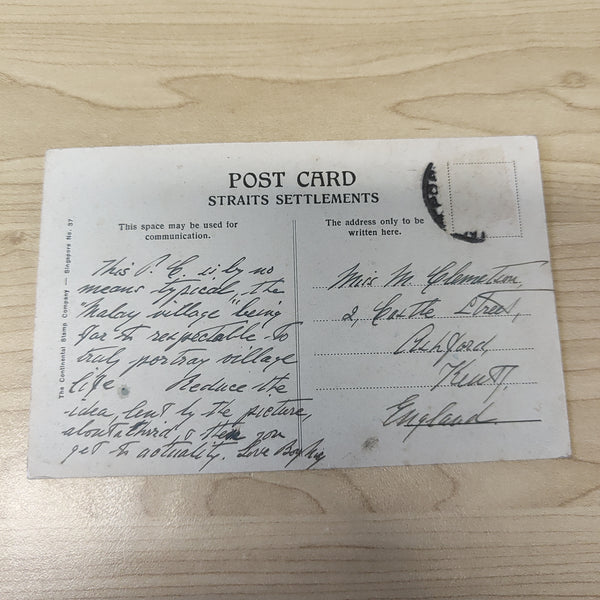 POST CARD
STRAITS SETTLEMENTS
This space may be used for
communication.
The address only to be
written here.
The Continental Stamp Company — Singapore No. 37
This P. C. is by no
means typical, the
"Malay village" being
far to respectable to
truly portray village
life. Reduce the
idea, lent by the picture,
about a third & then you
get to actuality. Love
Miss M.
2, Castle Street,
Ashford,
Kent,
England.